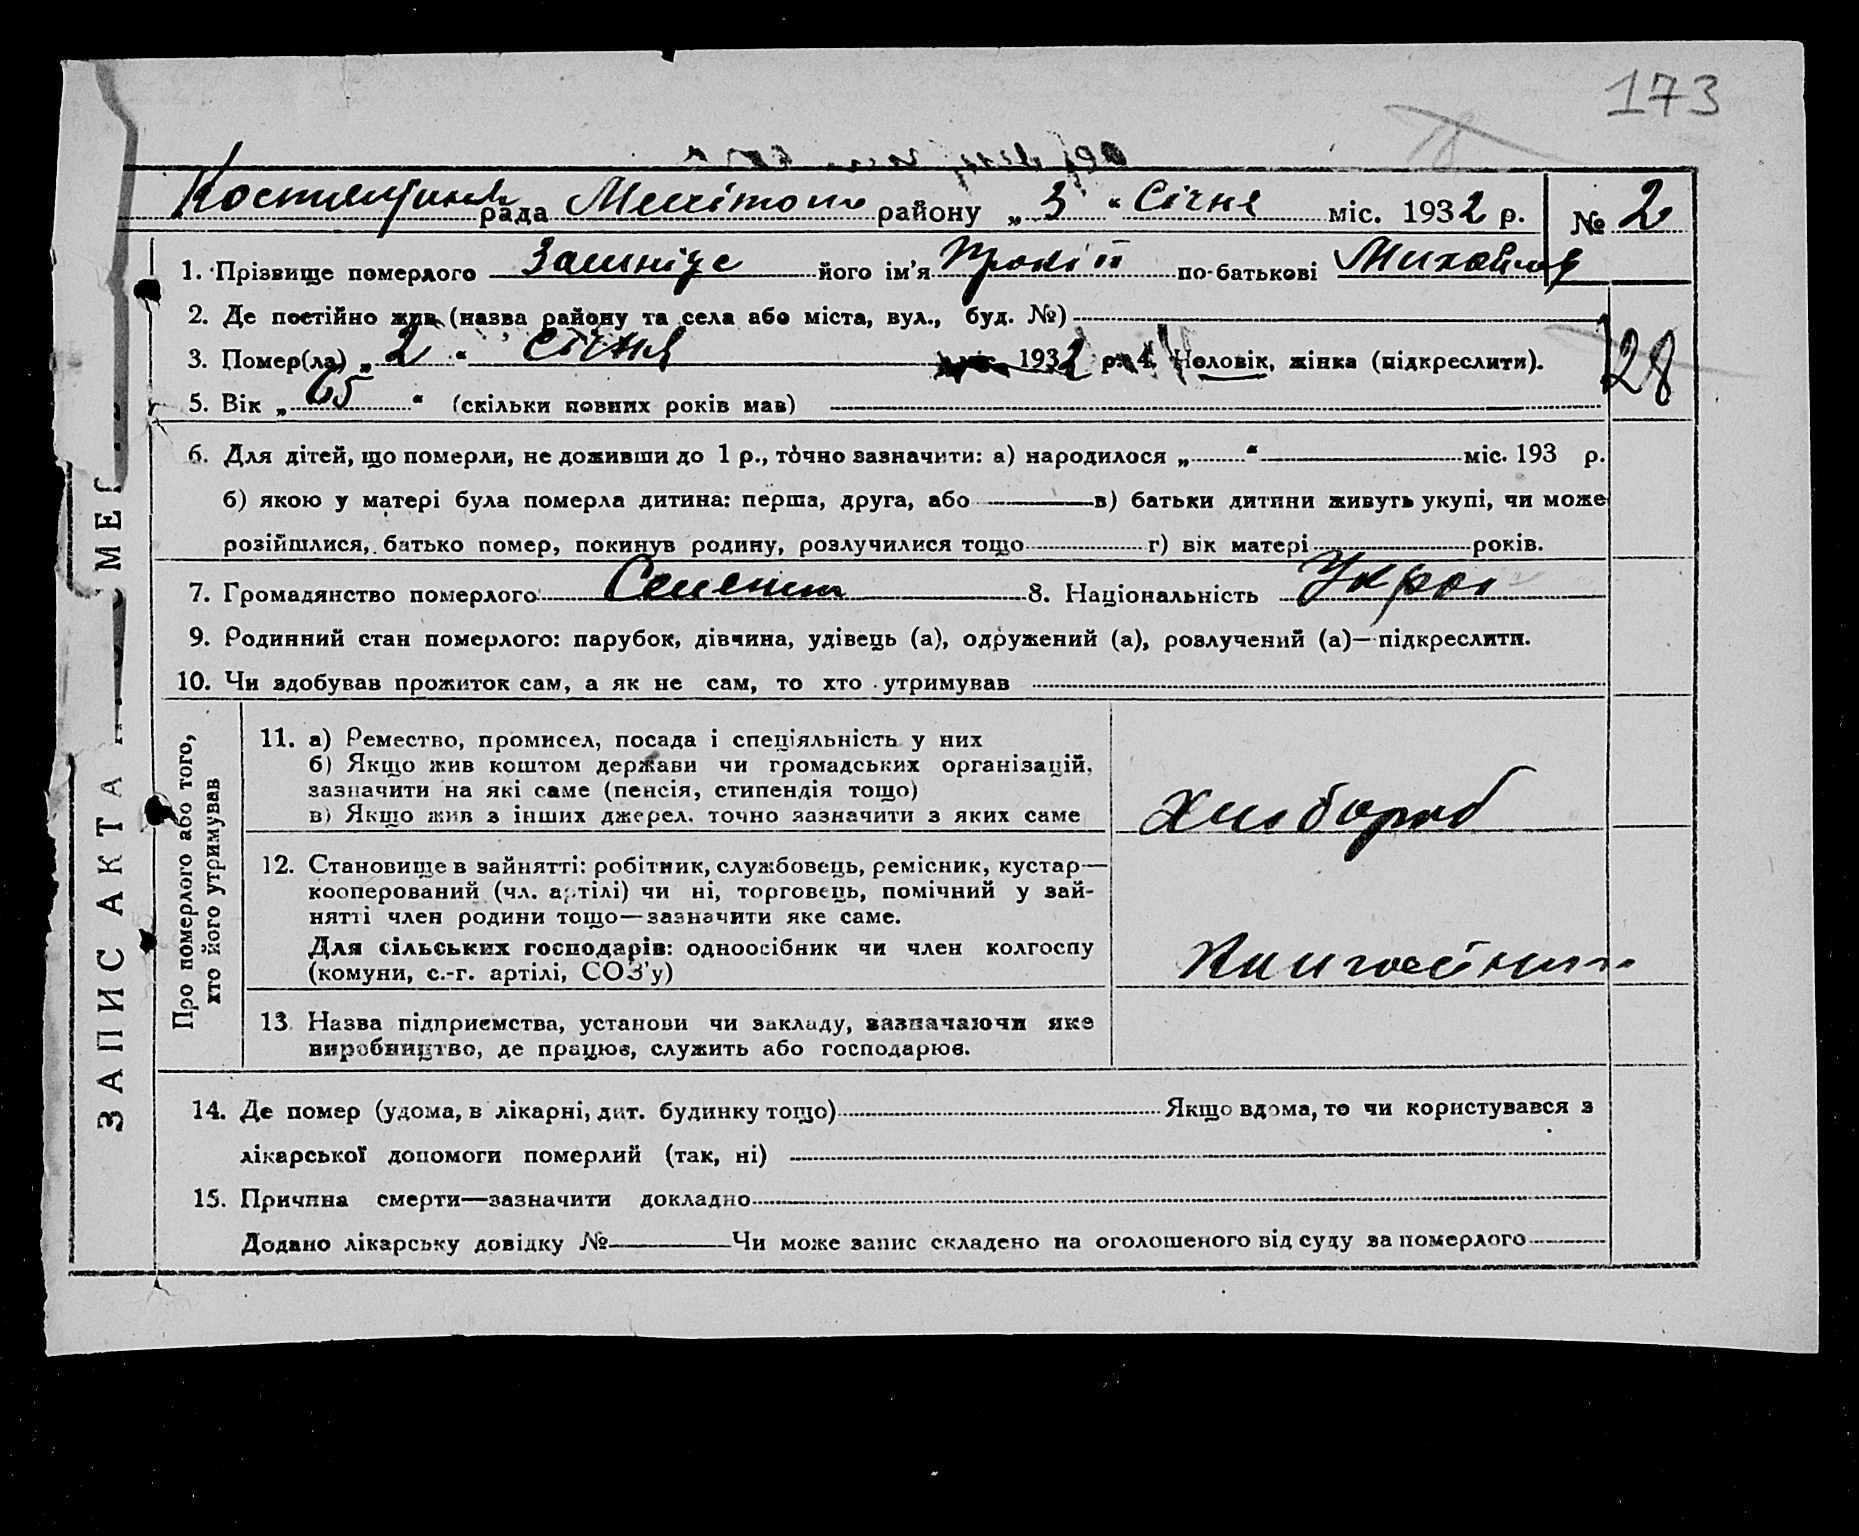 173
18
рада Мелітоп району „ 3 “ Січня міс. 1932 р. № 2
1. Прізвище померлого його ім'я Прокіп по-батькові Михайлов
2. Де постійно жив (назва району та села або міста, вул., буд. №)
3. Помер(ла) „ 2 “ січня 1932 р. 4. Чоловік, жінка (підкреслити).
28
5. Вік „ 65 “ (скільки повних років мав)
6. Для дітей, що померли, не доживши до 1 р., точно зазначити: а) народилося „ “ міс. 193 р.
б) якою у матері була померла дитина: перша, друга, або в) батьки дитини живуть укупі, чи може
розійшлися, батько помер, покинув родину, розлучилися тощо г) вік матері років.
7. Громадянство померлого 8. Національність Укра
9. Родинний стан померлого: парубок, дівчина, удівець (а), одружений (а), розлучений (а)—підкреслити.
10. Чи здобував прожиток сам, а як не сам, то хто утримував
Про померлого або того,
хто його утримував
11. а) Ремество, промисел, посада і спеціяльність у них
б) Якщо жив коштом держави чи громадських організацій,
зазначити на які саме (пенсія, стипендія тощо)
в) Якщо жив з інших джерел, точно зазначити з яких саме
Хлібороб
12. Становище в зайнятті: робітник, службовець, ремісник, кустар—
кооперований (чл. артілі) чи ні, торговець, помічний у зай-
нятті член родини тощо—зазначити яке саме.
Для сільських господарів: одноосібник чи член колгоспу
(комуни, с.-г. артілі, СОЗ'у)
13. Назва підприємства, установи чи закладу, зазначаючи яке
виробництво, де працює, служить або господарює.
14. Де помер (удома, в лікарні, дит. будинку тощо) Якщо вдома, то чи користувався з
лікарської допомоги померлий (так, ні)
15. Причина смерти—зазначити докладно
Додано лікарську довідку № Чи може запис складено на оголошеного від суду за померлого
ЗАПИС АКТА